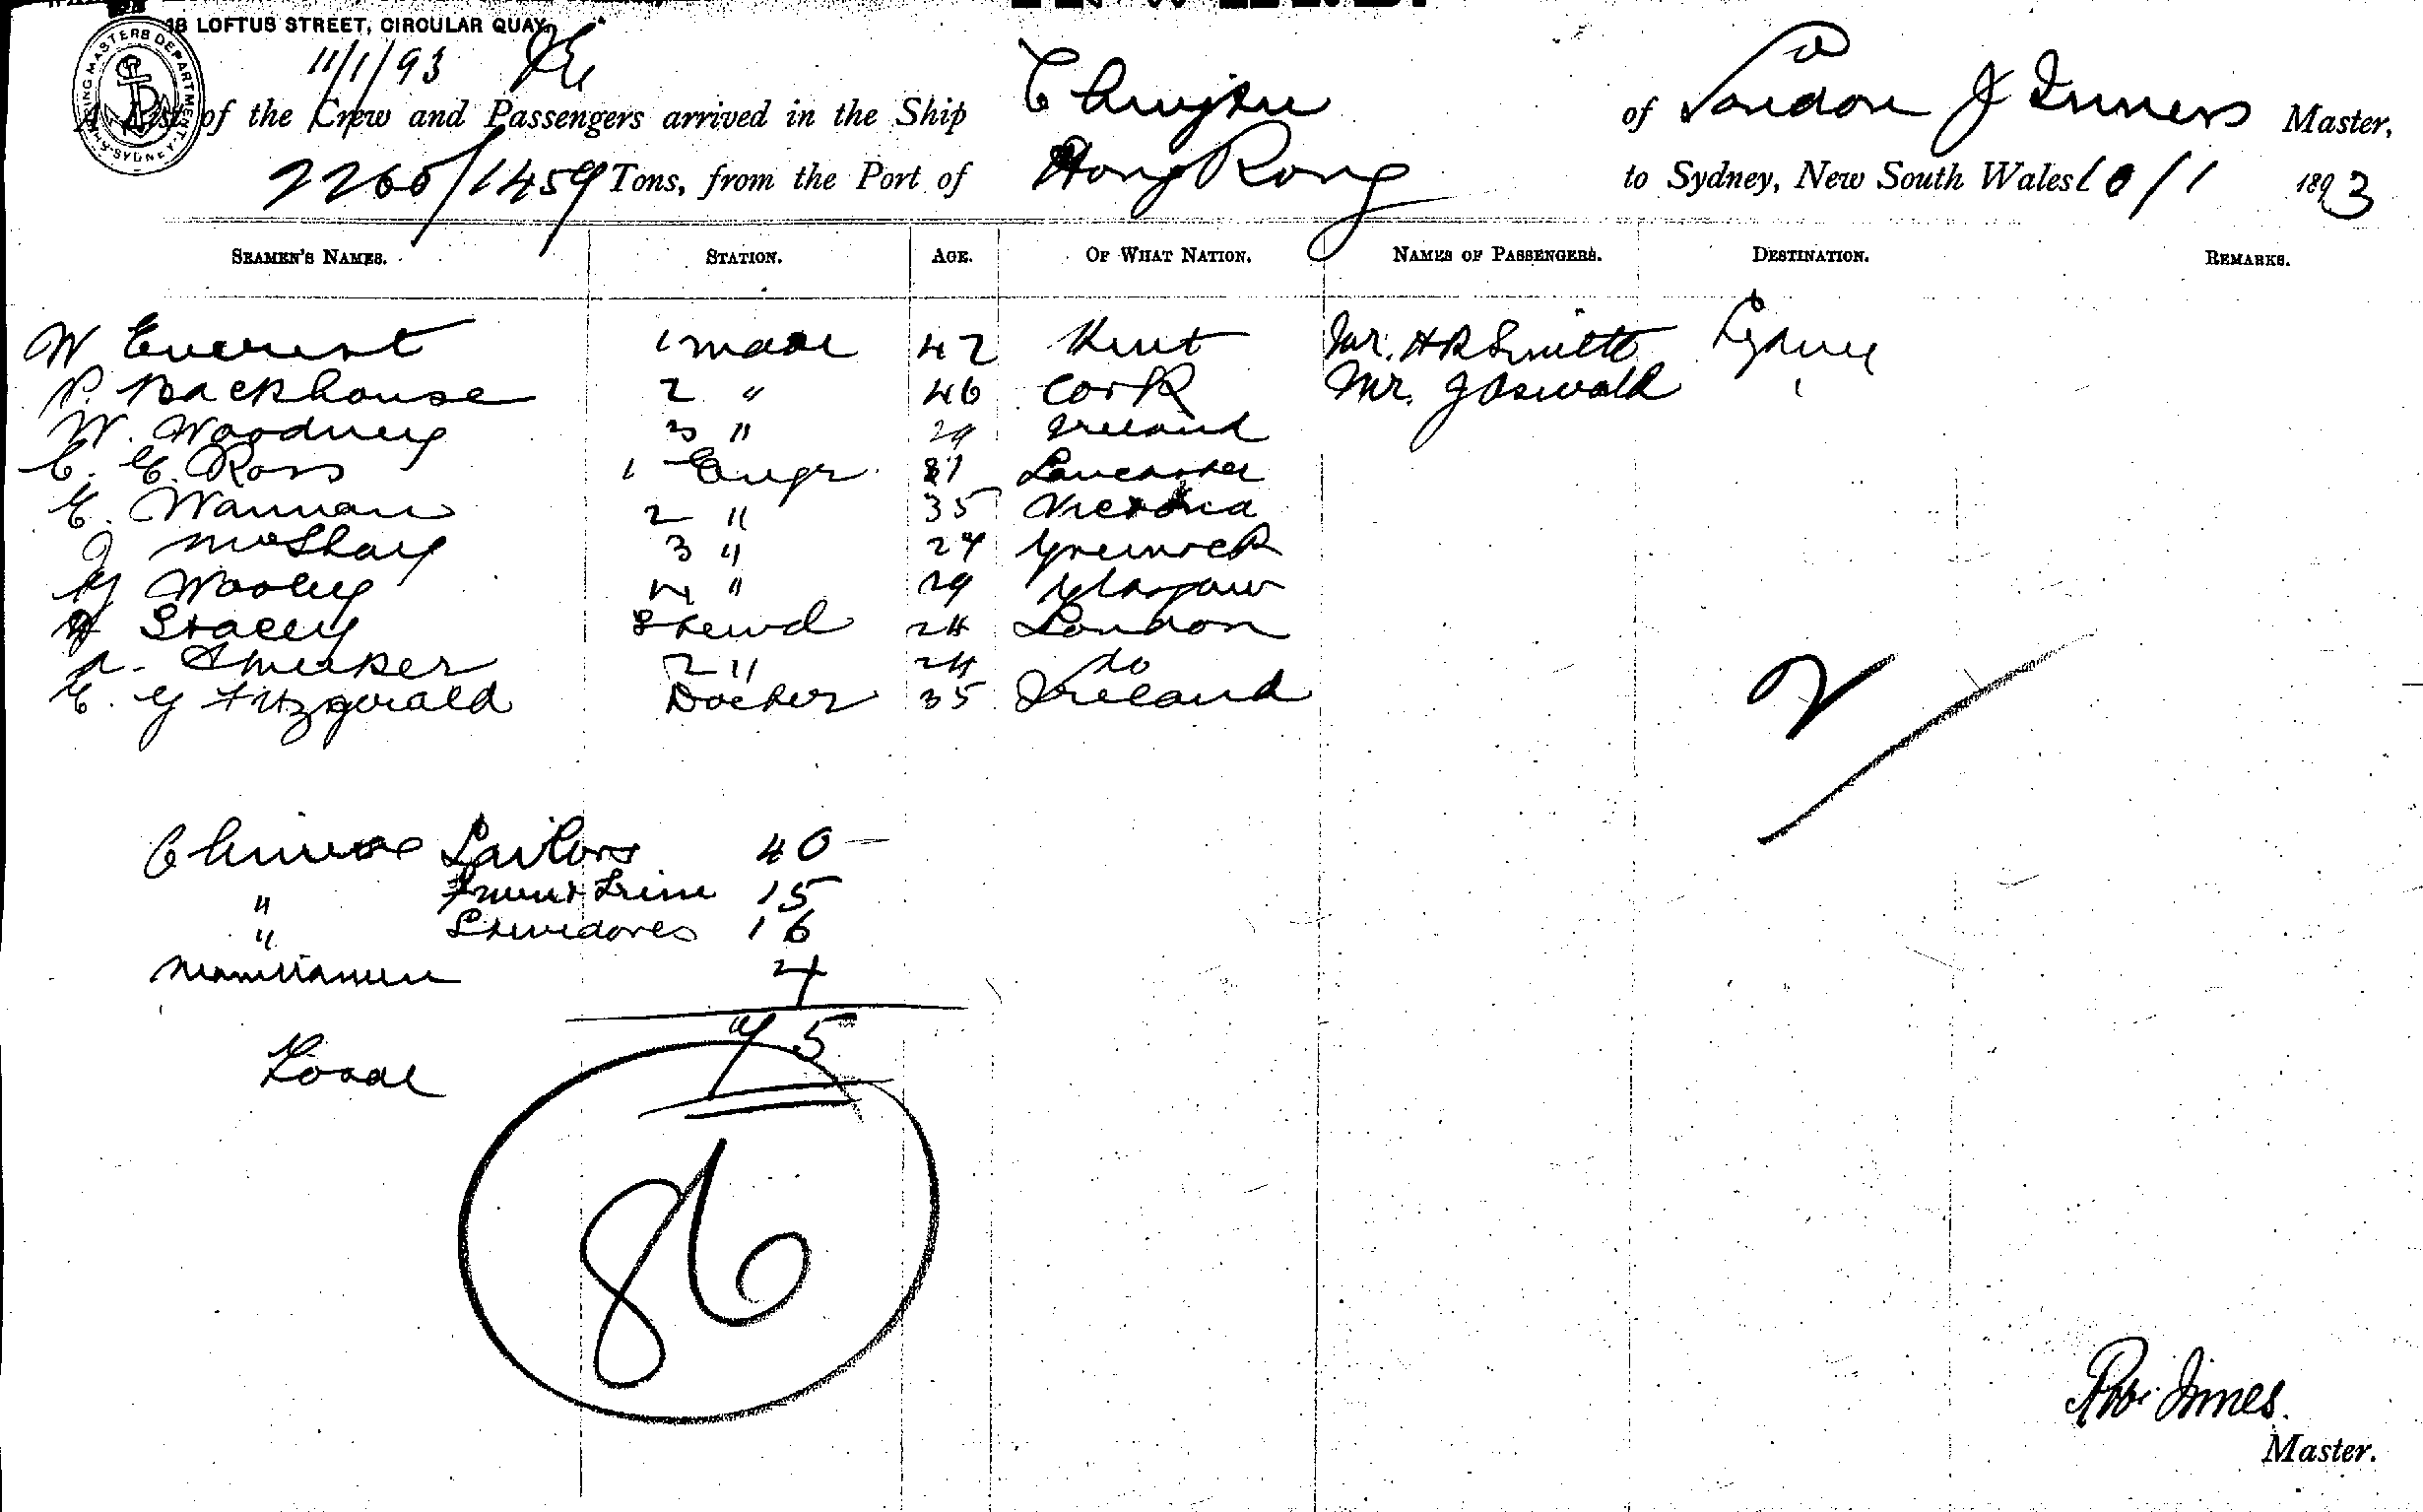 18 LOFTUS STREET, CIRCULAR QUAY,
SHIPPING MASTERS DEPARTMENT SYDNEY
11/1/93
A List of the Crew and Passengers arrived in the Ship of London J Innes Master,
2265/1459 Tons, from the Port of Hong Kong to Sydney, New South Wales 10/1 1893
SEAMEN'S NAMES. STATION. AGE. OF WHAT NATION. NAMES OF PASSENGERS. DESTINATION. REMARKS.
W Everest 1 mate 42 Kent Mr. H R Smith Sydney
P. Backhouse 2 " 46 Cork Mr. J Oswald
W. 3 " 29 Ireland
C. E. Ross 1 Engr. Lancaster
E. Wannan 2 " 35 Victoria
J 3 " 24 Greenock
Wooley 4 " 29 Glasgow
Stacey Stewd 24 London
A. 2 " 24 do
E. G Fitzgerald Docter 35 Ireland
2
Chinese Sailors 40
" 15
" Stevedores 16
4
75
Total
86
Rob. Innes.
Master.